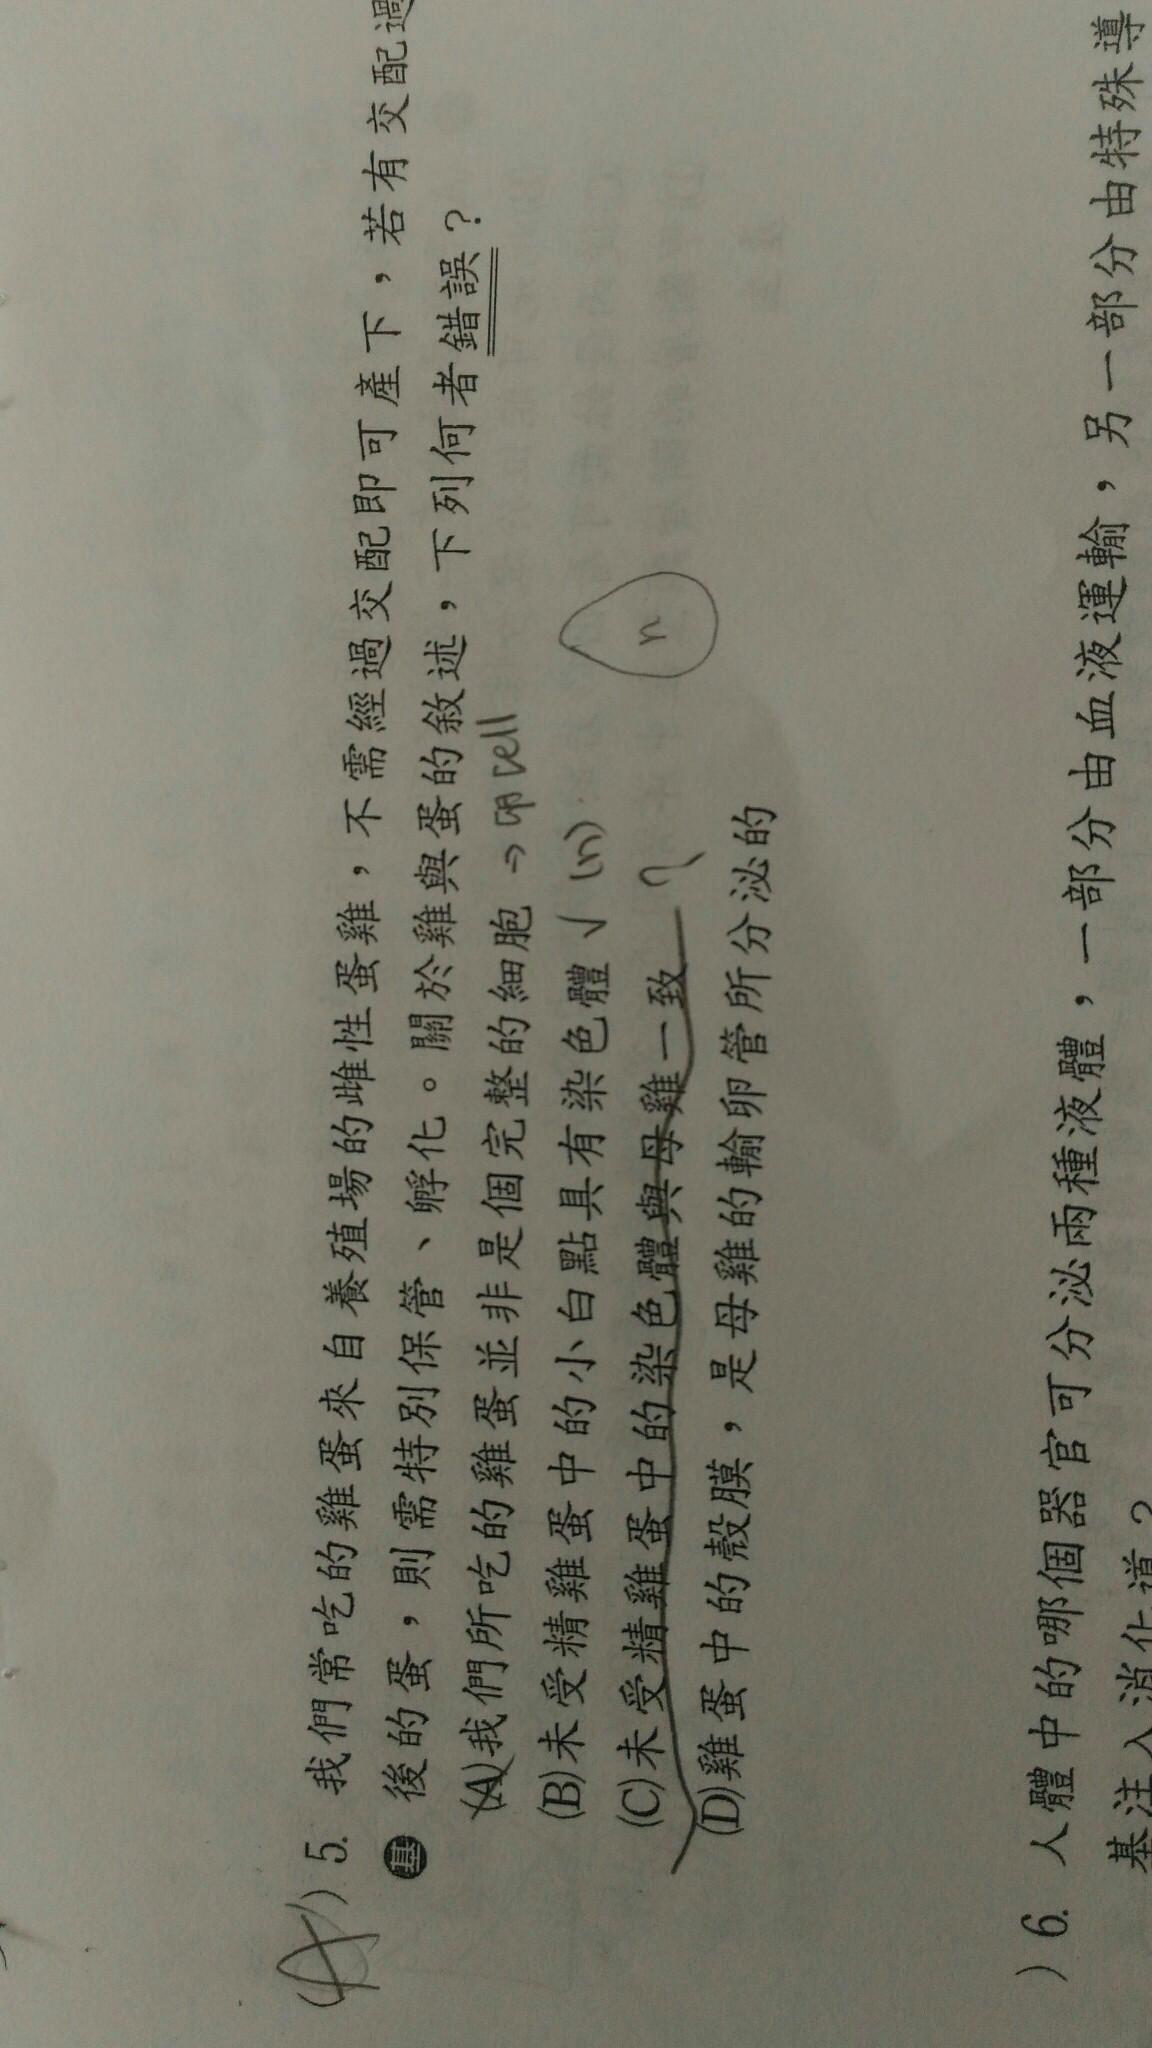 (A) 5. 我們常吃的雞蛋來自養殖場的雌性蛋雞，不需經過交配即可產下，若有交配過
後的蛋，則需特別保管、孵化。關於雞與蛋的敘述，下列何者錯誤？
(A)我們所吃的雞蛋並非是個完整的細胞 → 卵cell
(B)未受精雞蛋中的小白點具有染色體 √ (n)
(C)未受精雞蛋中的染色體與母雞一致 ?
n
(D)雞蛋中的殼膜，是母雞的輸卵管所分泌的
) 6. 人體中的哪個器官可分泌兩種液體，一部分由血液運輸，另一部分由特殊導